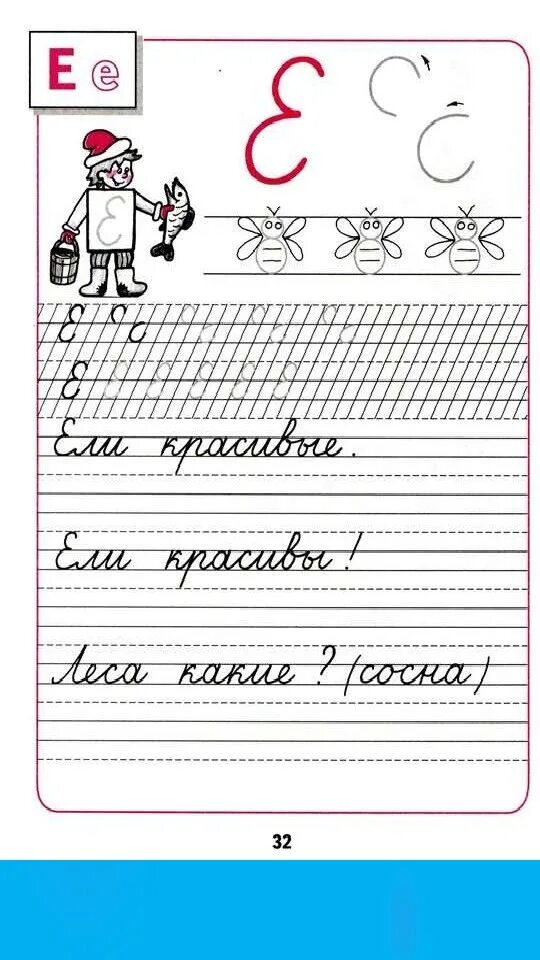 Е е
Е
Е
Е
Е
Ели красивые.
Ели красивы!
Леса какие? (сосна)
32